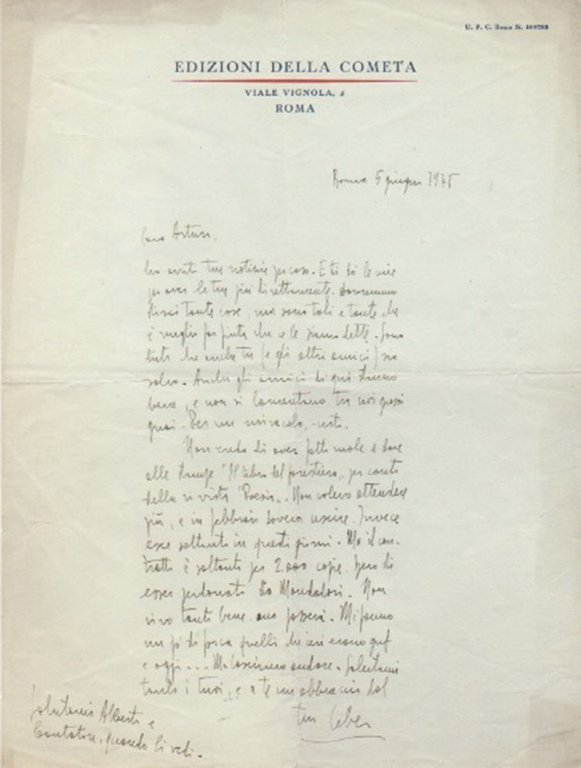 U. P. C. Roma N.
EDIZIONI DELLA COMETA
VIALE VIGNOLA, 4
ROMA
Roma 5 giugno 1945
Caro Arturo,
ho avuto tue notizie per caso. E ti do le mie
per aver le tue più direttamente. Dovremmo
dirci tante cose, ma sono tali e tante che
è meglio far finta che ce le siamo dette. Sono
lieto che anche tu (e gli altri amici) sia
salvo. Anche gli amici di qui stanno
bene, e non si lamentano tra noi grossi
guai. Per me miracolo,
Non credo di aver fatto male a dare
alle stampe "Il libro del forestiero", per conto
della rivista "Poesia". Non volevo attendere
più, e in febbraio doveva uscire. Invece
esce soltanto in questi giorni. Ma il con-
tratto è soltanto per 2.000 copie. Spero di
esser perdonato da Mondadori. Non
vivo tanto bene. Ma passerà. Mi fanno
un pò di forca quelli che ieri erano guf
e oggi... Ma lasciamo andare. Salutami
tanto i tuoi, e a te un abbraccio dal
tuo Libero
Salutami Alberto e
Cantatore, quando li vedi.